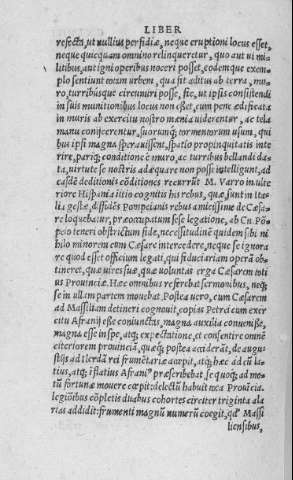 LIBER
refecta, ut nullius perfidiæ, neque eruptioni locus esset,
neque quicquam omnino relinqueretur, quo aut ui mi⸗
litibus, aut igni operibus noceri posset, eodemque exem⸗
plo sentiunt eam urbem, qua sit aditus ab terra, mu⸗
ro, turribusque circumiri posse, sic, ut ipsis consistendi
in suis munitionibus locus non esset, cum pene ædificata
in muris ab exercitu nostro mœnia uiderentur, ac tela
manu conijcerentur, suorumq; tormentorum usum, qui
bus ipsi magna sperauissent, spatio propinquitatis inte
rire, pariq; conditione è muro, ac turribus bellandi da
ta, uirtute se nostris adæquare non posse intelligunt, ad
easdē deditionis cōditiones recurrūt M. Varro in ulte
riore Hispania initio cognitis his rebus, quæ sunt in Ita
lia gestæ, diffidēs Pompeianis rebus amicissime de Cæsa
re loquebatur, præoccupatum sese legatione, ab Cn. Pō
peio teneri obstrictum fide, necessitudinē quidem sibi ni
hilo minorem cum Cæsare intercedere, neque se ignora
re quod esset officium legati, qui fiduciariam operā ob
tineret, quæ uires suæ, quæ uoluntas erga Cæsarem toti
us Prouinciæ. Hæc omnibus referebat sermonibus, neq;
se in ullam partem mouebat. Postea uero, cum Cæsarem
ad Massiliam detineri cognouit, copias Petrei cum exer
citu Afranij esse coniunctas, magna auxilia conuenisse,
magna esse in spe, atq; expectatione, et consentire omnē
citeriorem prouinciā, quæq; postea acciderāt, de augu⸗
stijs ad Ilerdā rei frumētariæ accepit, atq; hæc ad eū la
tius, atq; īflatius Afraniᵒ præscribebat se quoq; ad mo
tū fortunæ mouere cœpit: delectū habuit tota Prouīcia.
legiōibus cōpletis duabus cohortes circiter triginta ala
rias addidit: frumenti magnū numerū coegit, qd' Massi
liensibus,